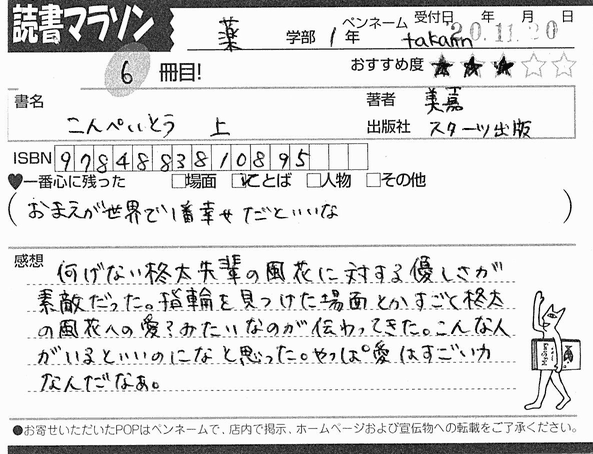 読書マラソン 薬 学部 1年 ペンネーム takarin 受付日 年 月 日 20.11.20
6 冊目! おすすめ度 ★★★☆☆
書名 こんぺいとう 上
著者 美嘉
出版社 スターツ出版
ISBN 9784883810895
♥一番心に残った □場面 ☑ことば □人物 □その他
(おまえが世界で1番幸せだといいな)
感想 何げない柊太先輩の風花に対する優しさが
素敵だった。指輪を見つけた場面とかすごく柊太
の風花への愛?みたいなのが伝わってきた。こんな人
がいるといいのになと思った。やっぱ愛はすごい力
なんだなぁ。
●お寄せいただいたPOPはペンネームで、店内で掲示、ホームページおよび宣伝物への転載をご了承ください。